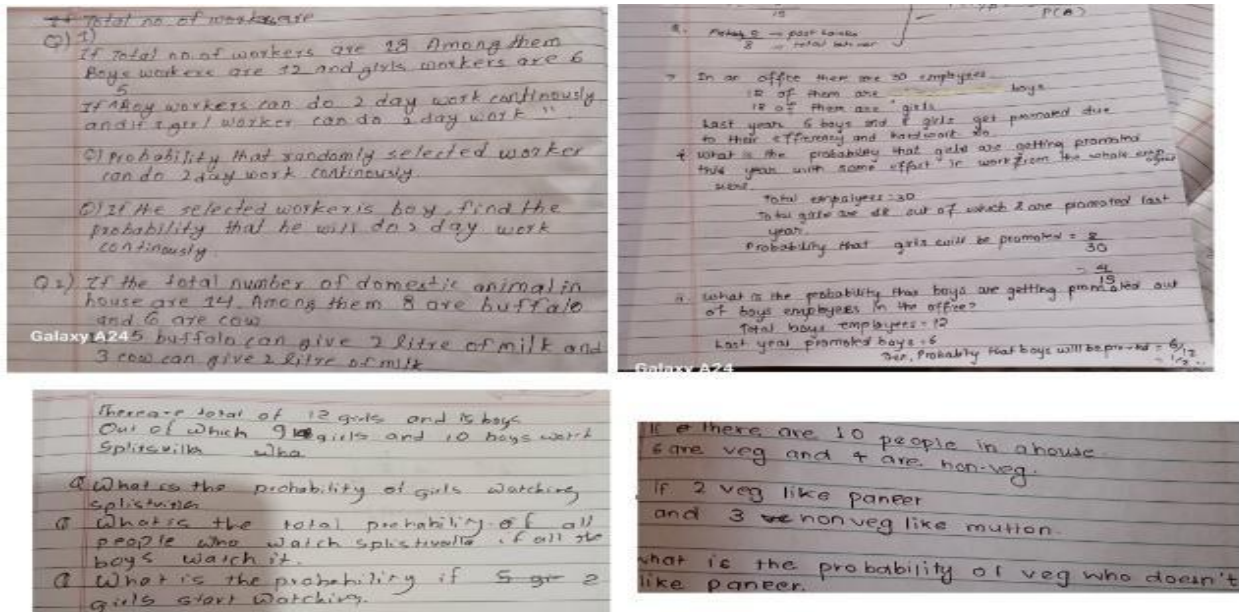 If Total no. of workers are
Q) 1)
If Total no. of workers are 18 Among them
Boys workers are 12 and girls workers are 6
5
If Boy workers can do 2 day work continously
and if 3 girl worker can do 2 day work "
Q) Probability that randomly selected worker
can do 2 day work continously
Q) If the selected worker is boy, find the
probability that he will do 2 day work
continously.
Q 2) If the total number of domestic animal in
house are 14. Among them 8 are buffalo
and 6 are cow
Galaxy A24
5 buffalo can give 2 litre of milk and
3 cow can give 2 litre of milk
P(A)
8
7 In an office there are 30 employees
12 of them are boys
18 of them are girls
Last year 6 boys and 8 girls get promoted due
to their efficiency and hardwork
what is the probability that girls are getting promoted
this year with same effort in work from the whole
Total empolyees = 30
Total girls are 18 out of which 8 are promoted last
year.
Probability that girls will be promoted = 8
30
= 4
15
ii. what is the probability that boys are getting promoted out
of boys employees in the office?
Total boys employees = 12
Last year promoted boys = 6
Probablity that boys will be = 6/12
Galaxy A24
There are total of 12 girls and 15 boys
Out of which 9 girls and 10 boys watch
Splitsvilla
Q What is the probability of girls watching
Q What is the total probability of all
people who watch if all the
boys watch it.
Q What is the probability if 5 gi 2
girls start watching.
If there are 10 people in a house.
6 are veg and 4 are non-veg.
if 2 veg like paneer
and 3 non veg like mutton.
what is the probability of veg who doesn't
like paneer.